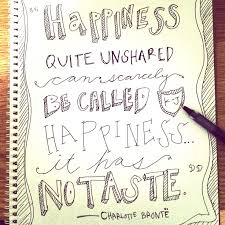 HAPPINESS
QUITE UNSHARED
can scarcely
BE CALLED
HAPPINESS...
it has
NO TASTE.
— CHARLOTTE BRONTË